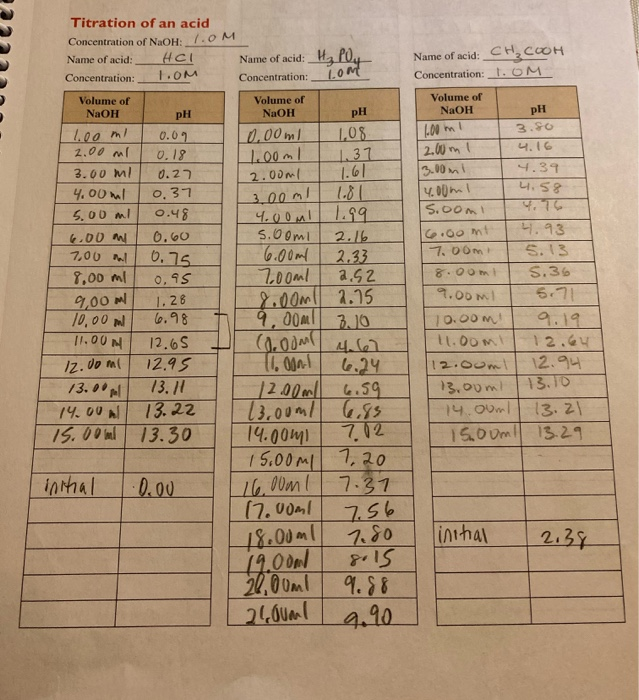 Titration of an acid
Concentration of NaOH: 1.0 M
Name of acid: HCl
Concentration: 1.0M
Volume of NaOH pH
1.00 ml 0.09
2.00 ml 0.18
3.00 ml 0.27
4.00 ml 0.37
5.00 ml 0.48
6.00 ml 0.60
7.00 ml 0.75
8.00 ml 0.95
9.00 ml 1.28
10.00 ml 6.98
11.00 ml 12.65
12.00 ml 12.95
13.00 ml 13.11
14.00 ml 13.22
15.00 ml 13.30
initial 0.00
Name of acid: H3PO4
Concentration: 1.0M
Volume of NaOH pH
0.00ml 1.08
1.00ml 1.37
2.00ml 1.61
3.00ml 1.81
4.00ml 1.99
5.00ml 2.16
6.00ml 2.33
7.00ml 2.52
8.00ml 2.75
9.00ml 3.10
10.00ml 4.67
11.00ml 6.24
12.00ml 6.59
13.00ml 6.83
14.00ml 7.02
15.00ml 7.20
16.00ml 7.37
17.00ml 7.56
18.00ml 7.80
19.00ml 8.15
20.00ml 9.88
21.00ml 9.90
Name of acid: CH3COOH
Concentration: 1.0M
Volume of NaOH pH
1.00 ml 3.80
2.00 ml 4.16
3.00ml 4.39
4.00ml 4.58
5.00ml 4.76
6.00 ml 4.93
7.00ml 5.13
8.00ml 5.36
9.00ml 5.71
10.00ml 9.19
11.00ml 12.64
12.00ml 12.94
13.00ml 13.10
14.00ml 13.21
15.00ml 13.29
initial 2.38